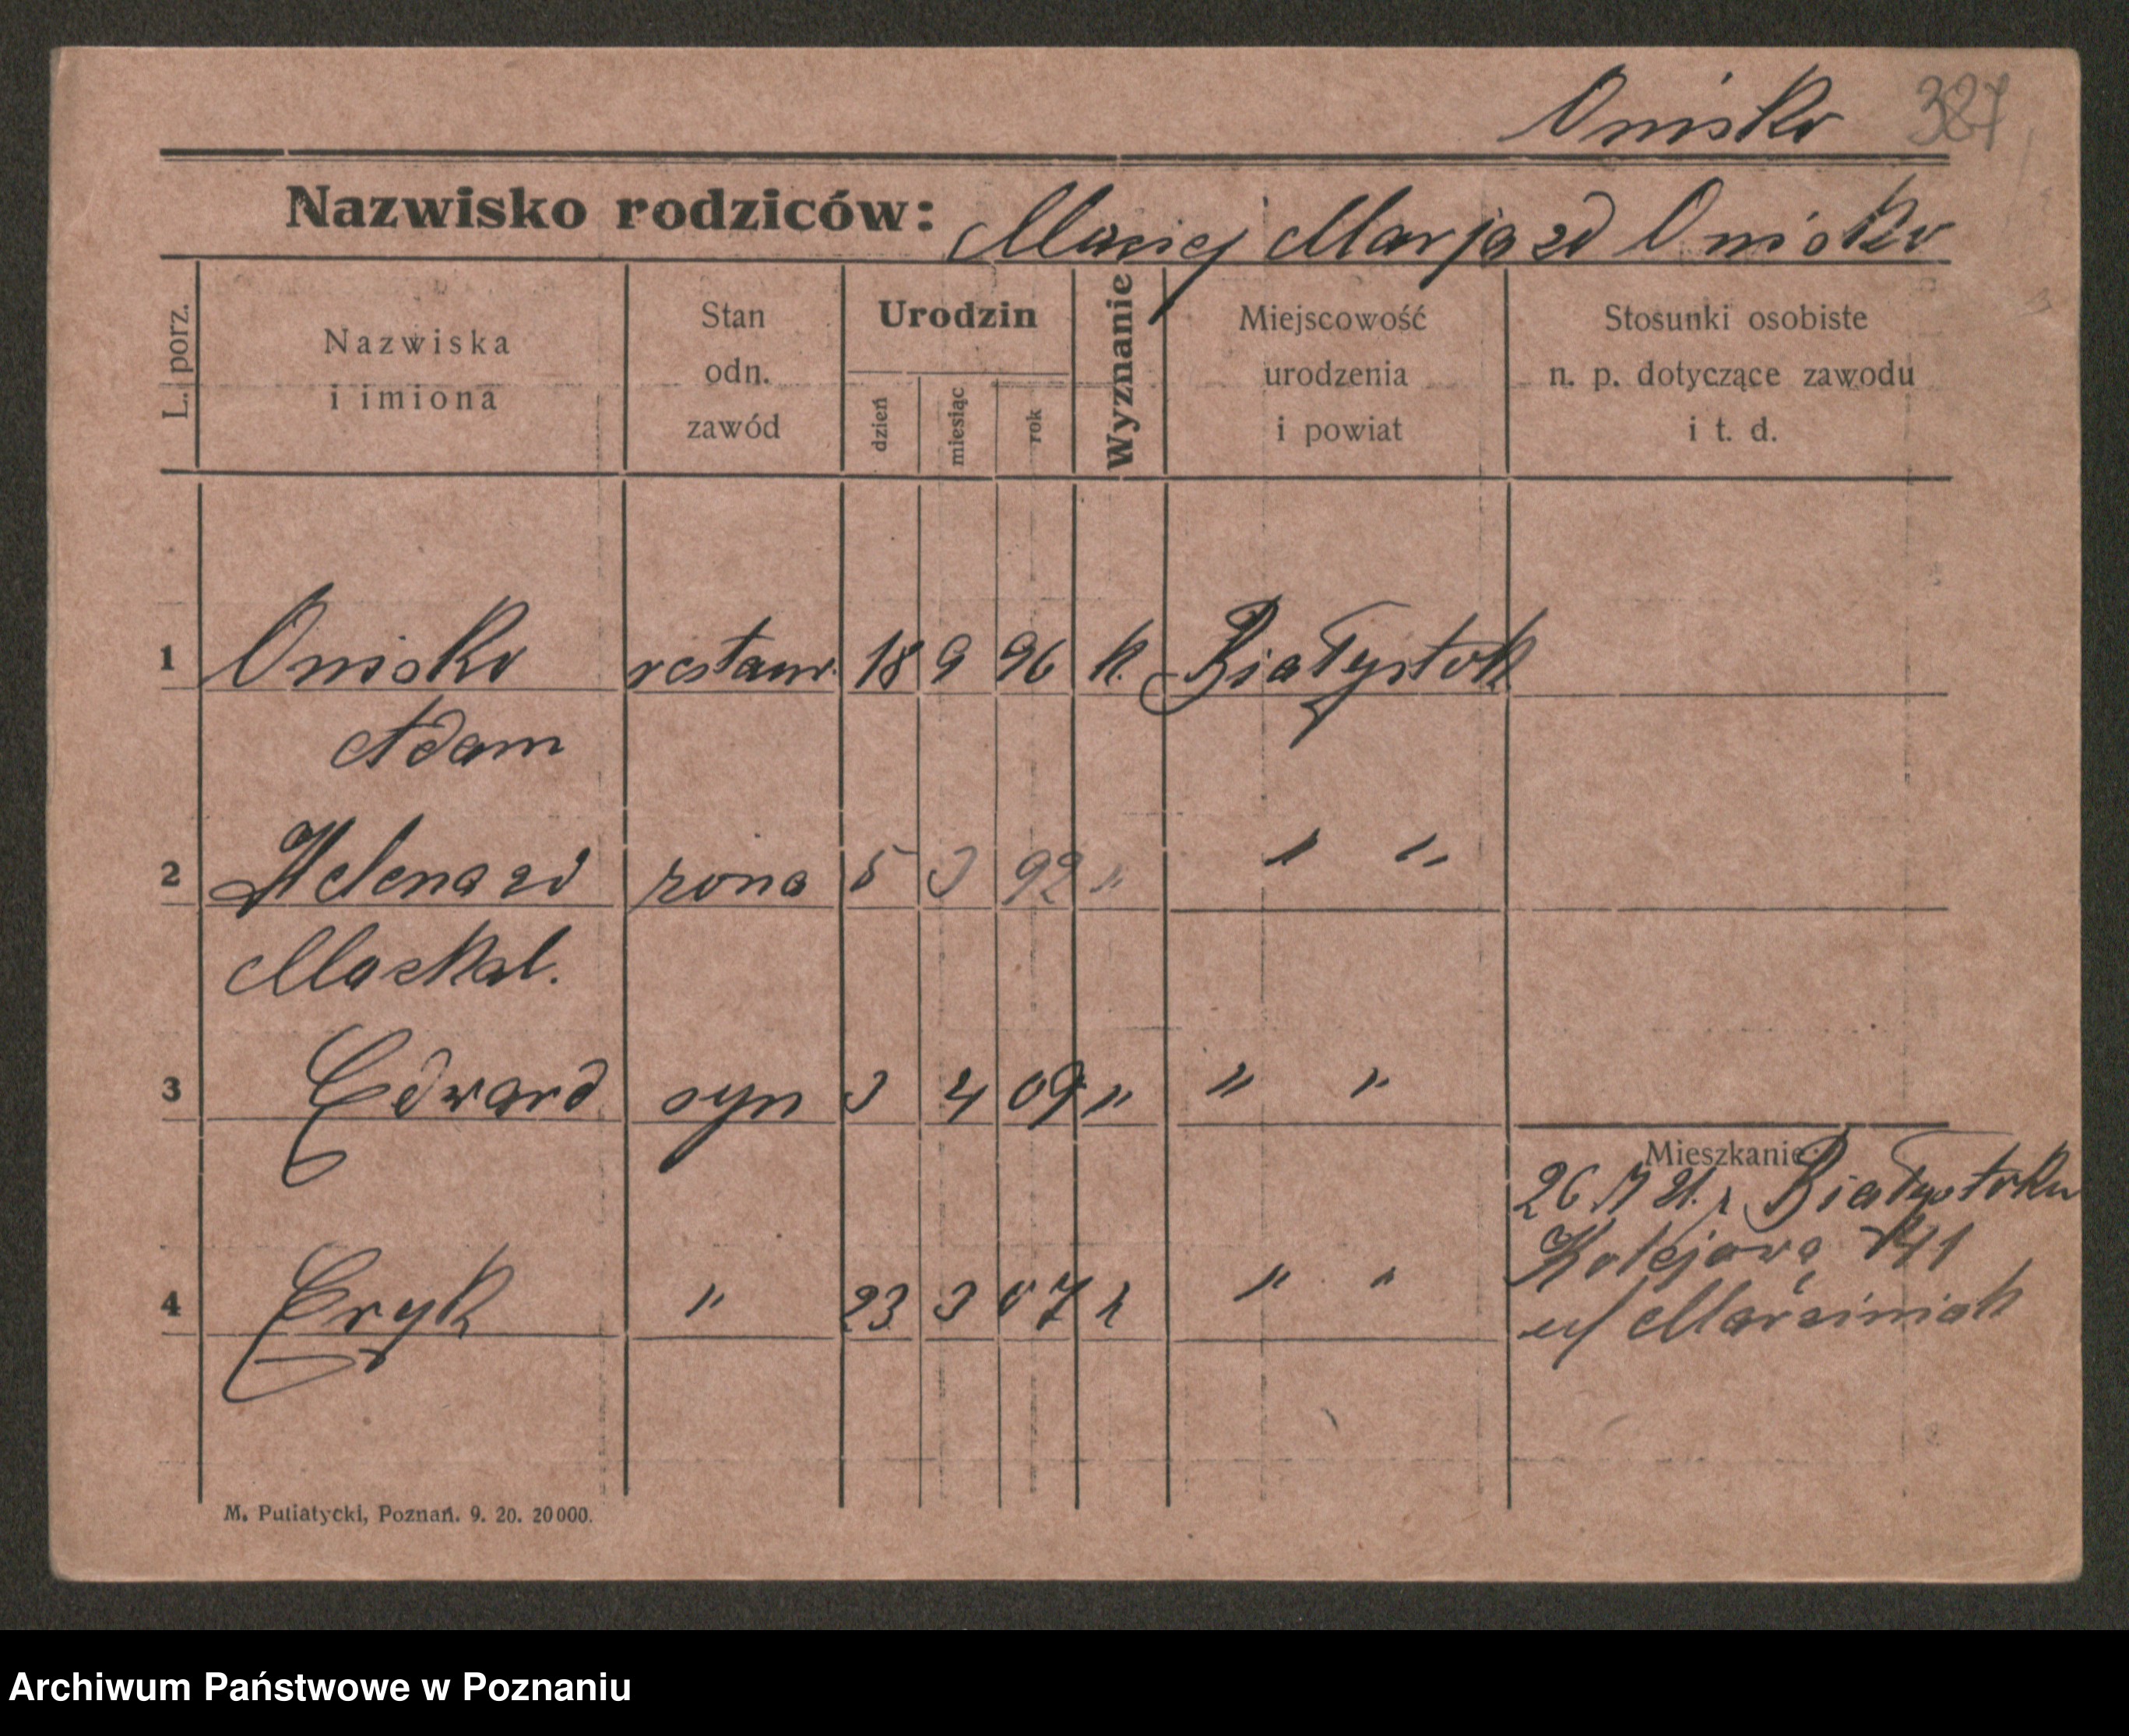 Onisko 387
Nazwisko rodziców: Maciej Marja zd Onisko
L. porz.
Nazwiska
i imiona
Stan
odn.
zawód
Urodzin
dzień
miesiąc
rok
Wyznanie
Miejscowość
urodzenia
i powiat
Stosunki osobiste
n. p. dotyczące zawodu
i t. d.
1 Onisko restaur. 18 9 96 k. Białystok
Adam
2 Helena zd żona 5 3 92 " " "
Moskal.
3 Edward syn 3 4 09 " " "
4 Eryk " 23 3 07 " "
Mieszkanie:
26 21. z Białystoku
Kolejowa 41
u/ Marciniak
M. Putiatycki, Poznań. 9. 20. 20000.
Archiwum Państwowe w Poznaniu